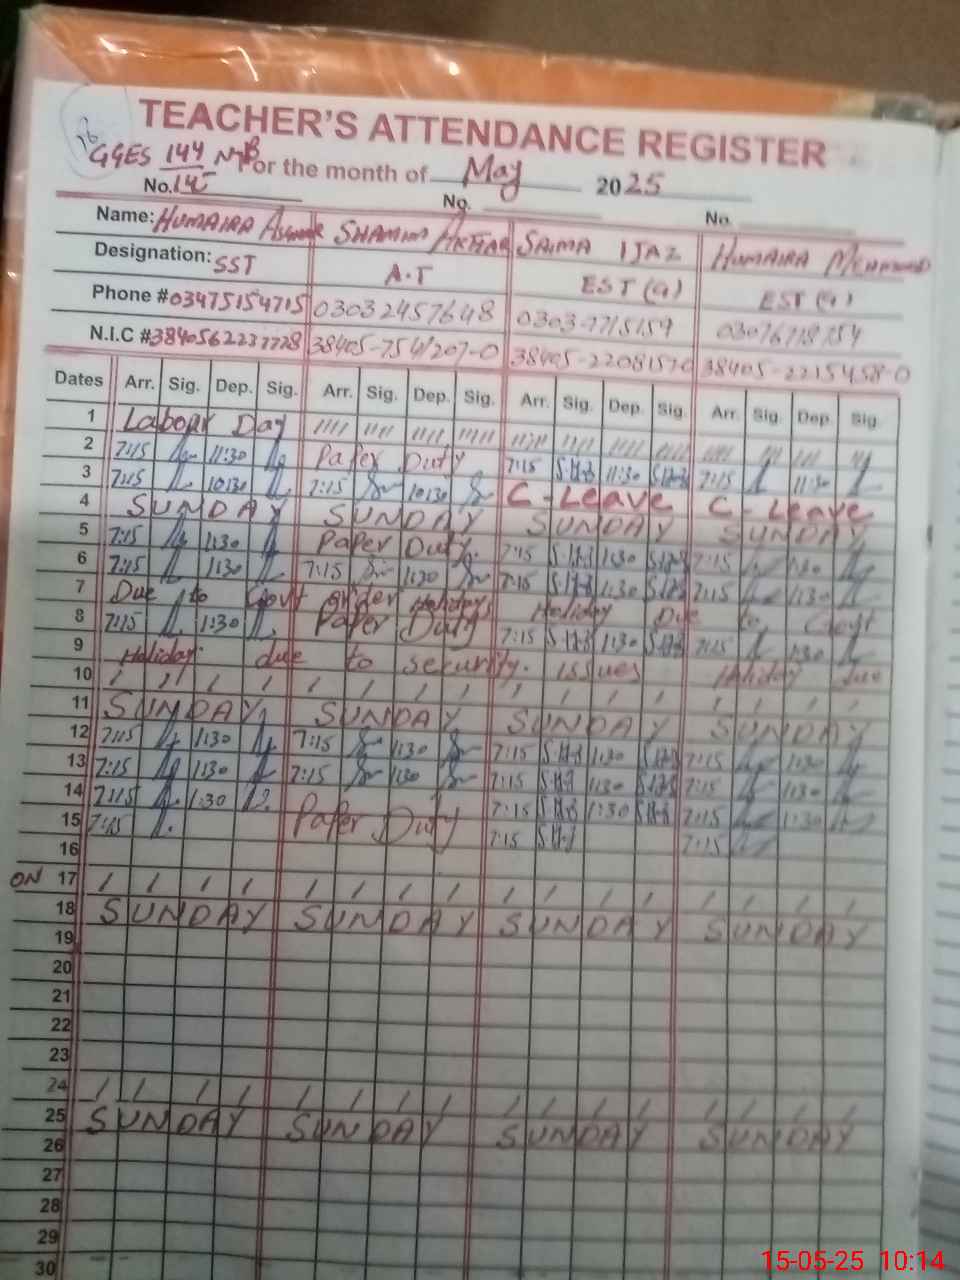 TEACHER'S ATTENDANCE REGISTER
GGES 144 NB For the month of May 2025
No. 145 No. No.
Name: HUMAIRA SHAMIM AKHTAR SAIMA IJAZ HUMAIRA
Designation: SST A.T EST (G) EST (G)
Phone # 03475154715 03032457648 0303-7715159
N.I.C # 38405-2215458-0
Dates Arr. Sig. Dep. Sig. Arr. Sig. Dep. Sig. Arr. Sig. Dep. Sig. Arr. Sig. Dep. Sig.
1 Labour Day
2 7:15 11:30 Paper Duty 7:15 11:30 7:15 11:30
3 7:15 10:30 7:15 10:30 C-Leave C-Leave
4 SUNDAY SUNDAY SUNDAY SUNDAY
5 7:15 1:30 Paper Duty. 7:15 1:30 7:15 1:30
6 7:15 1:30 7:15 1:30 7:15 1:30 7:15 1:30
7 Due to Govt order Holidays Holiday Due to Govt
8 7:15 1:30 Paper Duty 7:15 1:30 7:15 1:30
9 Holiday due to security issues Holiday due
10
11 SUNDAY SUNDAY SUNDAY SUNDAY
12 7:15 1:30 7:15 1:30 7:15 1:30 7:15 1:30
13 7:15 1:30 7:15 1:30 7:15 1:30 7:15 1:30
14 7:15 1:30 7:15 1:30 7:15 1:30
15 7:15 Paper Duty 7:15 7:15
16
ON 17
18 SUNDAY SUNDAY SUNDAY SUNDAY
19
20
21
22
23
24
25 SUNDAY SUNDAY SUNDAY SUNDAY
26
27
28
29
30
15-05-25 10:14